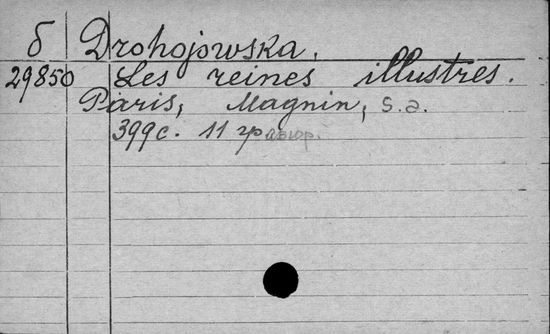 б Drohojowska.
29850 Les reines illustres.
Paris, Magnin, s.a.
399с. 11 гр